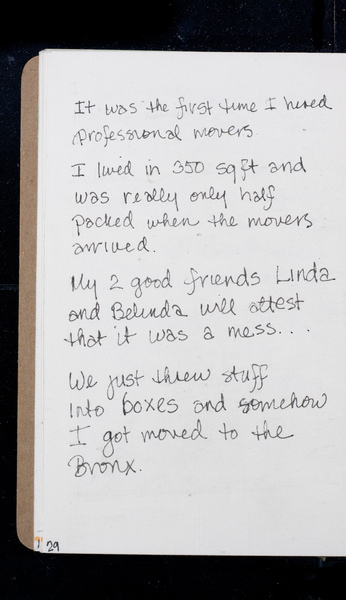 It was the first time I hired
professional movers.
I lived in 350 sqft and
was really only half
packed when the movers
arrived.
My 2 good friends Linda
and Belinda will attest
that it was a mess....
We just threw stuff
into boxes and somehow
I got moved to the
Bronx.
29